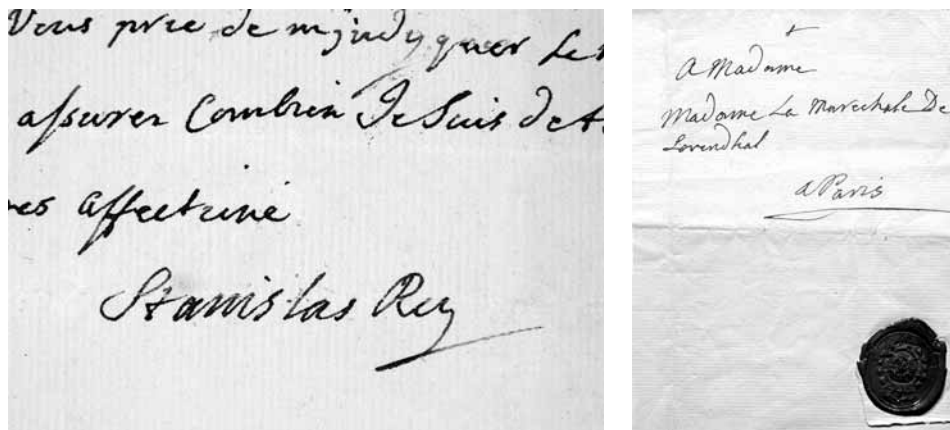 Vous prie de m'indyquer les
assurer Combien Je Suis de
affectioné
Stanislas Roy
A Madame
Madame La Marechale De
Lovendhal
a Paris